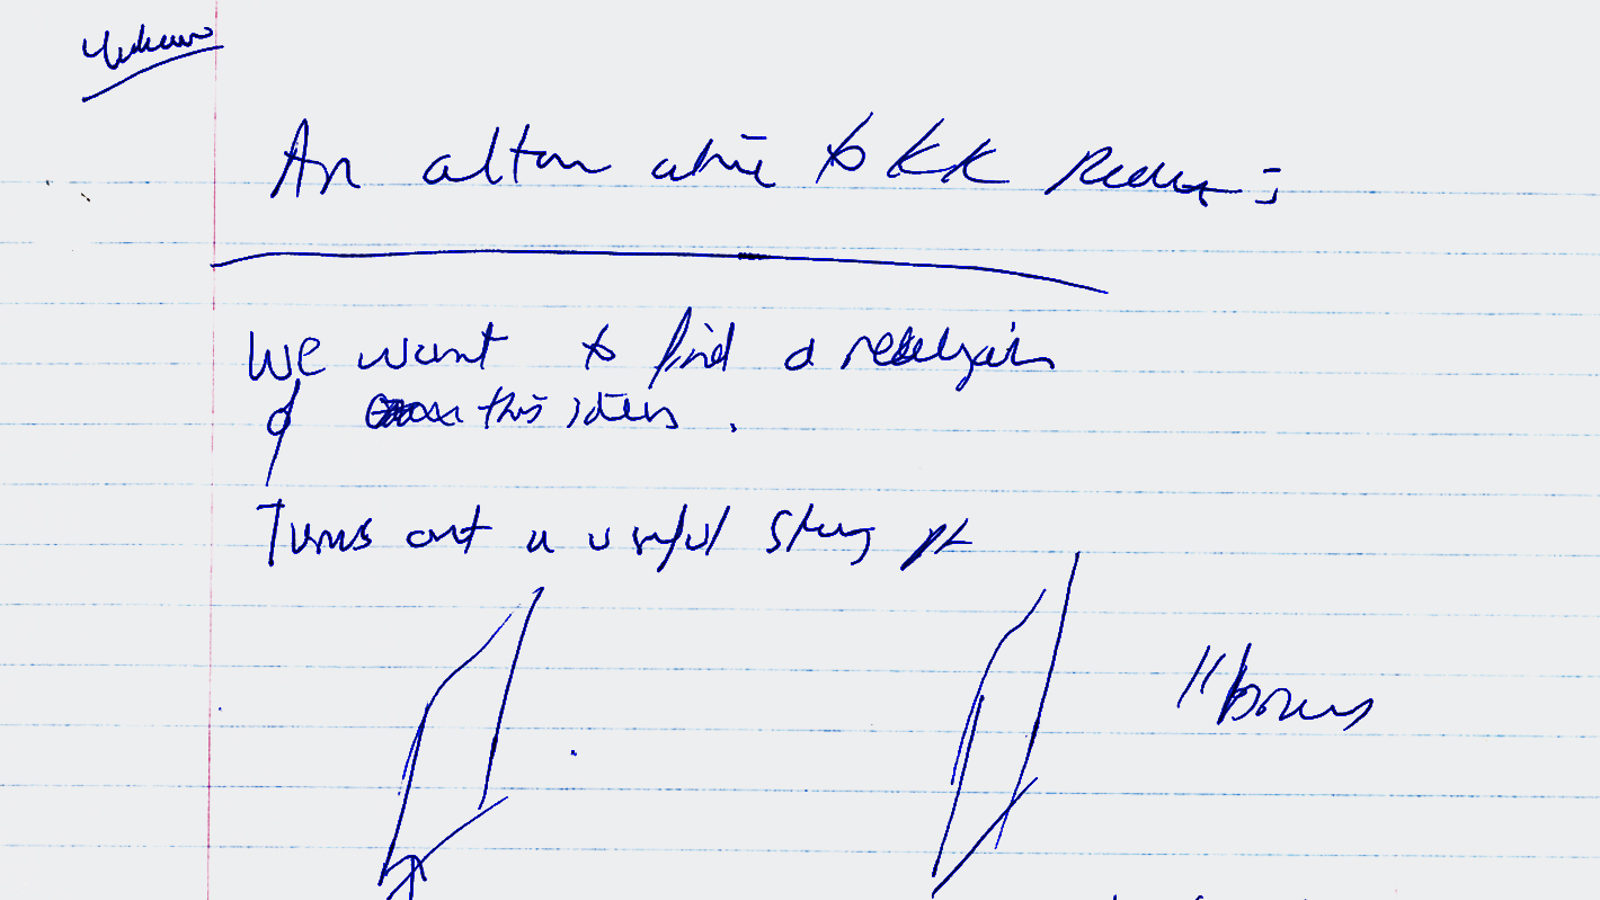 An alternative to KK
We want to find a realization
of this idea.
Turns out a useful starting pt
"branes